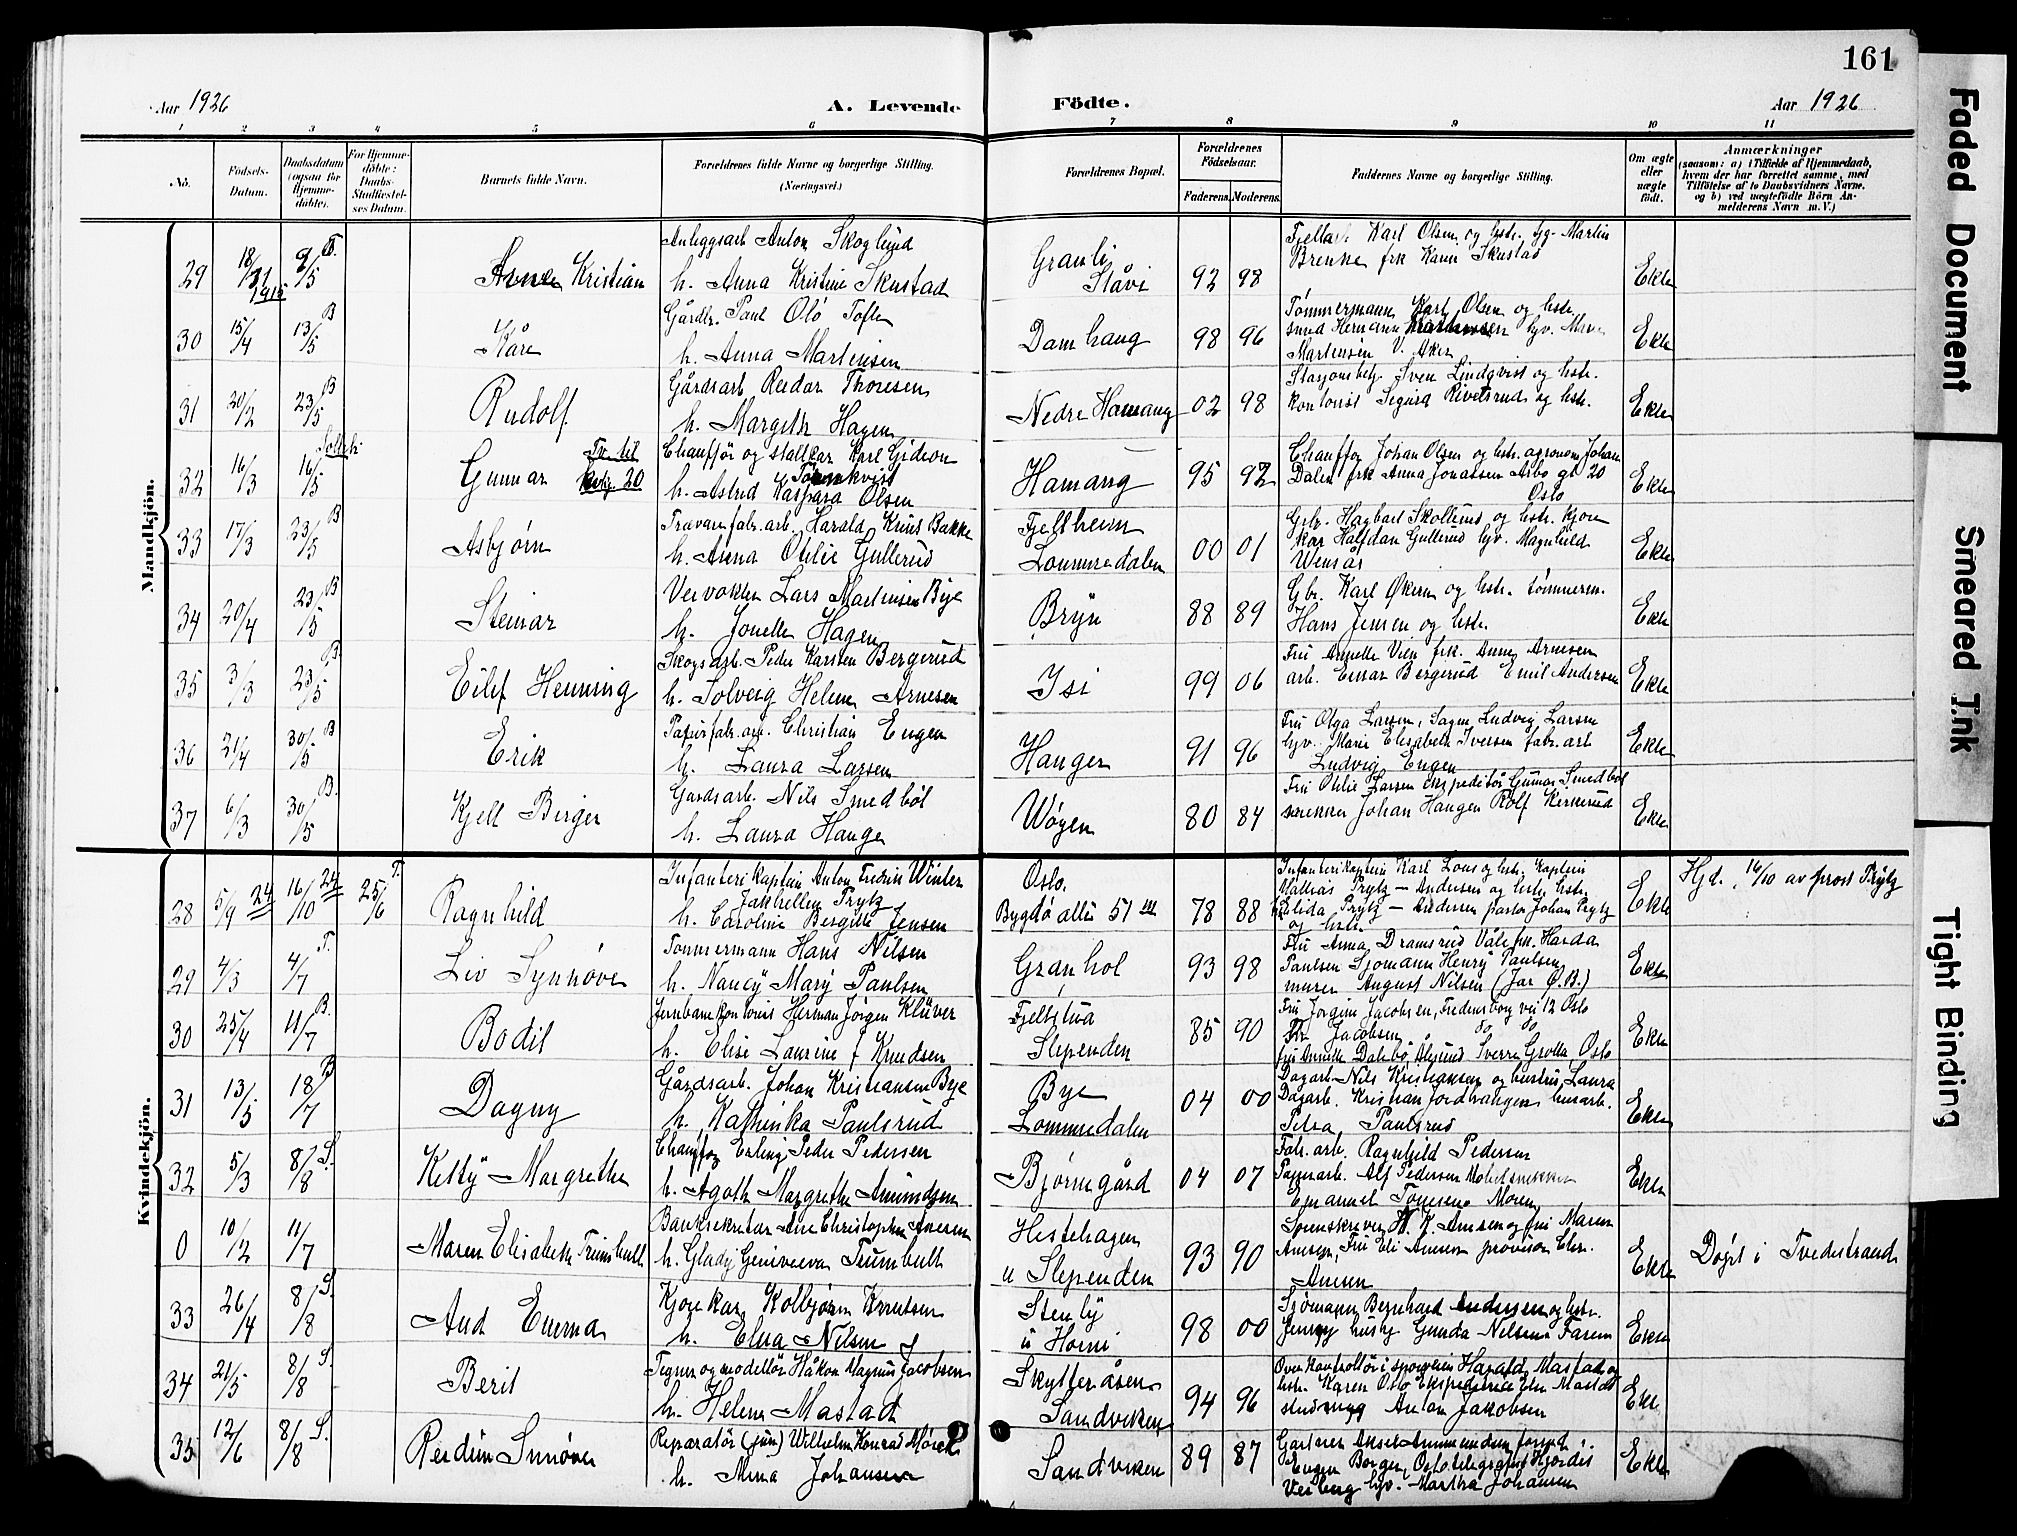 161
Aar 1926
A. Levende
Födte.
Aar 1926
1 2 3 4 5 6 7 8 9 10 11
No.
Födsels-Datum.
Daabsdatum (ogsaa for Hjemmedöbte).
For Hjemmedöbte: Daabs-Stadfæstelses Datum.
Barnets fulde Navn.
Forældrenes fulde Navne og borgerlige Stilling.
(Næringsvei.)
Forældrenes Bopæl.
Forældrenes Födselsaar.
Faderens. Moderens.
Faddernes Navne og borgerlige Stilling.
Om ægte eller uægte födt.
Anmærkninger
(saasom: a) i Tilfælde af Hjemmedaab, hvem der har forrettet samme, med Tilföielse af to Daabsvidners Navne. og b) ved uægtefödte Börn Anmelderens Navn m. V.)
Mandkjön.
29 18/31 1915 9/5 T. Arne Kristian
Anleggsarb Anton Skoglund
h. Anna Kristine Skustad
Granli
Slåvi 92 98
Karl Olsen og hstr. Martin
Brenke frk Karen Skustad
Ekte
30 15/4 13/5 B Kåre
Gårdbr. Paul Olö Tofte
h. Anna Martinsen
Damhaug 98 96
Tømmermann Karl Olsen og hstr.
smed Hermann
Martensen V. Aker
Ekte
31 20/2 23/5 B Rudolf
Gårdsarb Reidar Thoresen
h. Margith Hagen
Nedre Hamang 02 98
Stasjonsbetj. Sven Lindqvist og hstr.
kontorist Sigurd og hstr.
Ekte
32 16/3 16/5 Gunnar Tv. til kvk. 20
Chauffør og Karl Gideon
Törnkvist
h. Astrid Kaspara Olsen
Hamang 95 92
Chauffør Johan Olsen og hstr. agronom Johan
Dalen frk Anna Jonassen Arbo gt 20
Oslo
Ekte
33 17/3 23/5 B Asbjørn
Trævarefabr.arb. Harald Knut Bakke
h. Anna Otilie Gullerud
Fjellheim
Lommedalen 00 01
Gbr. Hagbart Skollerud og hstr. kjøre
kar Halfdan Gullerud hyv. Magnhild
Ekte
34 20/4 23/5 B Steinar
Veivokter Lars Martinsen Bye
h. Jonette Hagen
Bryn 88 89
Gbr. Karl Økern og hstr. tømmerm.
Hans Jensen og hstr.
Ekte
35 3/3 23/5 B Eilif Henning
Skogsarb. Peder Karsten Bergerud
h. Solveig Helene Arnesen
Isi 99 06
Fru Annette Vien frk. Anna Arnesen
arb. Einar Bergerud Emil Andersen
Ekte
36 21/4 30/5 B Erik
Papirfabr.arb. Christian Engen
h. Laura Larsen
Hanger 91 96
Fru Olga Larsen, Ludvig Larsen
hyv. Marie Elisabeth Iversen fabr.arb
Ludvig Engen
Ekte
37 6/3 30/5 B. Kjell Birger
Gardsarb. Nils Smedböl
h. Laura Hauge
Wøyen 80 84
Fru Otilie Larsen ekspeditör Gunnar Smedböl
snekker Johan Haugen Rolf Kerkerud
Ekte
Kvindekjön.
28 5/9 24 16/10 24 25/6 T. Ragnhild
Infanterikaptein Anton Fredrik Winter
Jakhellen Prytz
h. Caroline Bergitte Jensen
Oslo.
Bygdö allé 51 III 78 88
Infanterikaptein Karl Lous og hstr. Kaptein
Mathias Prytz – Andersen og hstr.
Elida Prytz – Andersen pastor Johan Prytz
og hstr.
Ekte
Hjd. 16/10 av prost Prytz
29 4/3 4/7 T. Liv Synnøve
Tømmermann Hans Nilsen
h. Nancy Mary Paulsen
Granhol 93 98
Fru Anna Dramsrud Våle frk. Harda
Paulsen Sjømann Henry Paulsen,
murer August Nilsen (Jar Ø.B.)
Ekte
30 25/4 11/7 B. Bodil
Jernbanekontorist Herman Jörgen Klüver
h. Elise Laurine f Knudsen
Fjellstua
Slependen 85 90
Fru Jorgine Jacobsen, Fredensborg vei 12 Oslo
Jacobsen, do do
fru Annette Dalebö, Sverre Grotta, Oslo
Ekte
31 13/5 18/7 B Dagny
Gårdsarb. Johan Kristiansen Bye
h. Kathinka Paulsrud
Bye
Lommedalen 04 00
Dagarb. Nils Kristiansen og hustru Laura
Dagarb. Kristian Jordhaugen husarb.
Petra Paulsrud
Ekte
32 5/3 8/8 S. Ketty Margrethe
Chauffør Erling Peder Pedersen
h. Agoth Margrethe Amundsen
Bjørnegård 04 07
Fabr. arb. Ragnhild Pedersen
Papirarb. Alf Pedersen Møbelsnekker
Emanuel
Ekte
0 10/2 11/7 Maren Elisabeth Trumbull
Banksekretær Arne Christopher Anesen
h. Glady Genivieva Trumbull
Hestehagen
u Slependen 93 90
Sorenskriver H. K. Anesen og fru Maren
Anesen, Fru Eli Anesen provisor Chr.
Anesen
Ekte
Døpt i Tvedestrand
33 26/4 8/8 S. Aud Emma
Kjørekar Kolbjørn Knutsen
h. Elna Nilsen
Stenly
u Horni 98 00
Sjømann Bernhard Andersen og hstr.
Jenny husbj Gunda Nilsen
Ekte
34 21/5 8/8 S. Berit
Tegner og modellör Håkon Magnus Jacobsen
h. Helene Mastad
Skytteråsen
Sandviken 94 96
Overkontrollör i sporveien Harald Mastad og
hstr. Karen Oslo Ekspeditrice Else Mastad
Anton Jakobsen
Ekte
35 12/6 8/8 S. Reidun Sunnöve
Reparatör (jun) Wilhelm Konrad Mørch
h. Mina Johansen
Sandviken 89 87
Gartner Aksel Ammundsen
Borgen, Oslo telegrafist Hjördis
Veiberg hyv. Martha Johansen
Ekte
Faded Document
Smeared Ink
Tight Binding